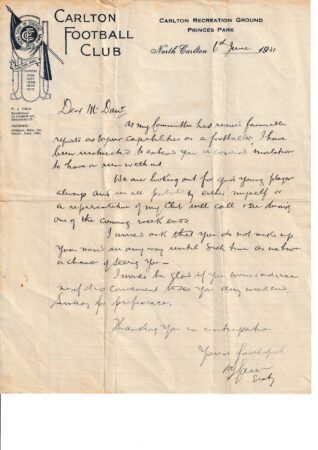 CARLTON
FOOTBALL
CLUB
CARLTON RECREATION GROUND
PRINCES PARK
North Carlton 6th June 1931
Dear Mr
as my Committee has received favourable
reports as to your capabilities as a footballer I have
been instructed to extend you a cordial invitation
to have a run with us.
We are looking out for good young players
always and in all probability either myself or
a representative of my Club will call over during
one of the coming week ends
I would ask that you do not make up
your mind in any way until such time as we have
a chance of seeing you -
I would be glad if you would advise
me if it is convenient to see you any weekend,
for preference.
Thanking you in anticipation
Yours faithfully
Secty